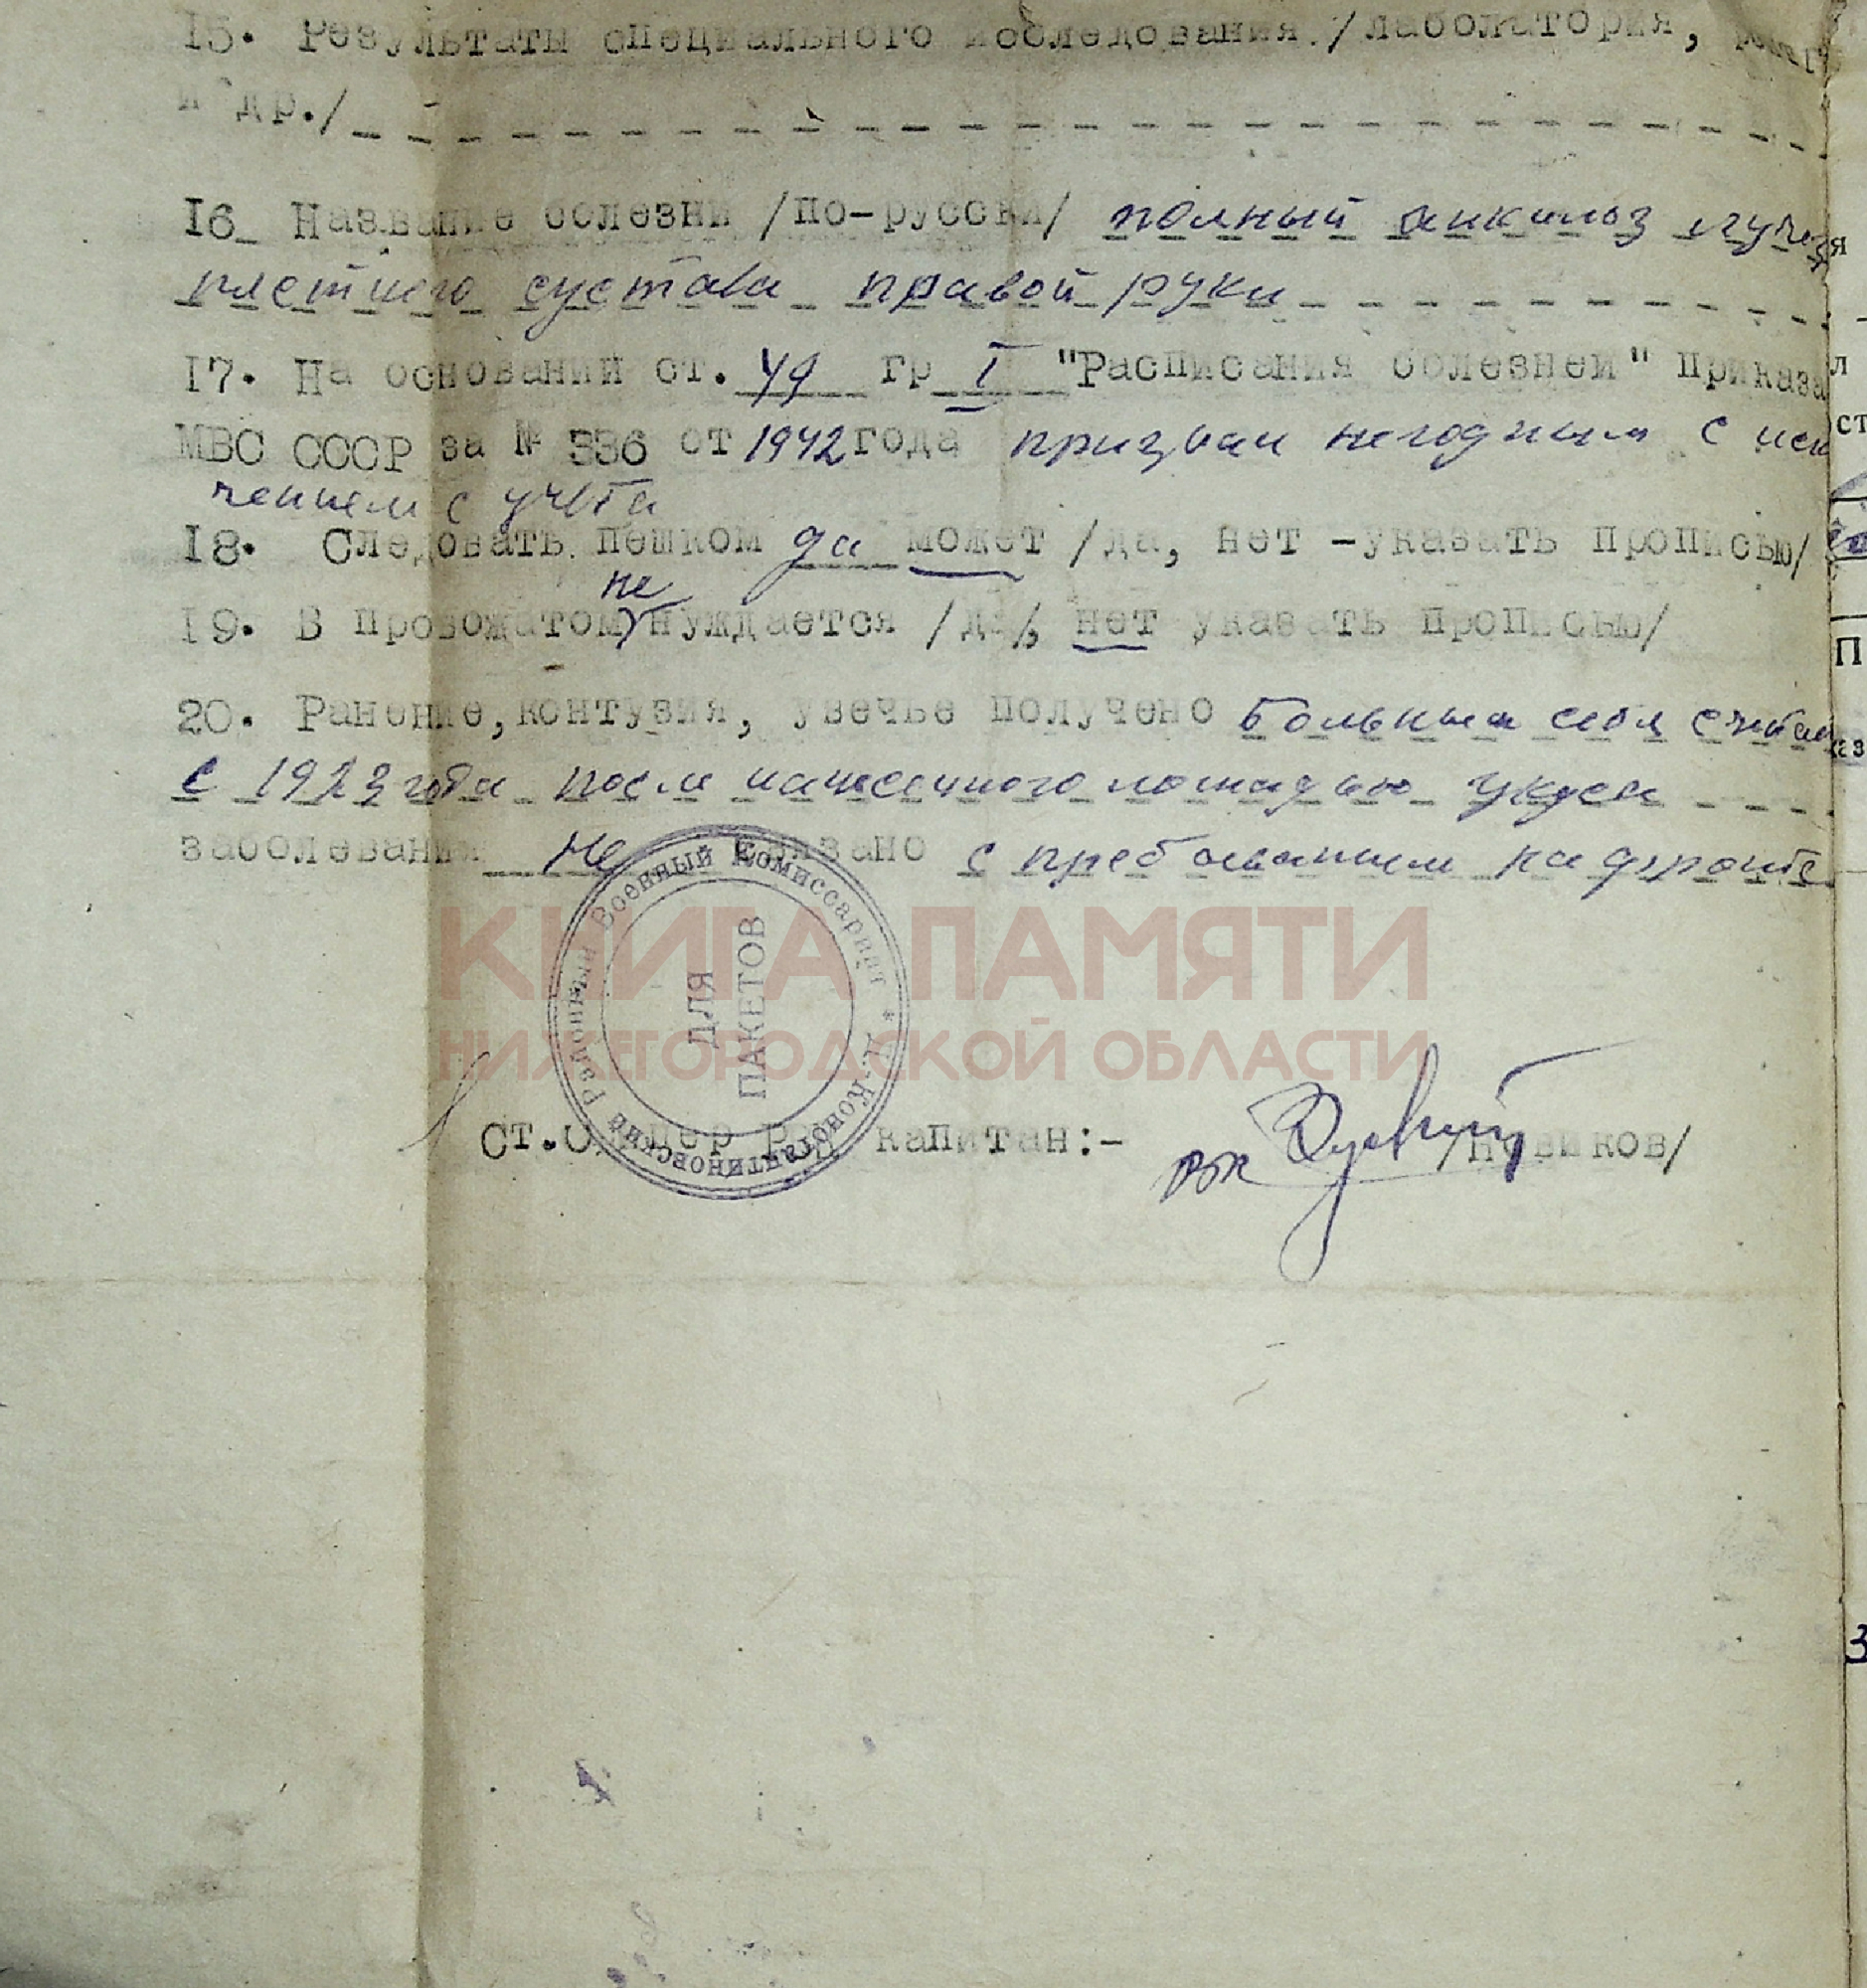 15. Результаты специального исследования /лаболатория,
и др./
16_ Название болезни /по-русски/ полный анкилоз лучеза
пястного сустава правой руки
17. На основании ст. 49 гр I "Расписания болезней" приказа
МВС СССР за № 336 от 1942 года признан негодным с иск
чением с учёта
18. Следовать пешком да может /да, нет -указать прописью/
не
19. В провожатом нуждается /да/, нет указать прописью/
20. Ранение, контузия, увечье получено Больным себя считает
с 1923 года после нанесенного лошадью укуса
заболевание не связано с пребыванием на фронте
Д.-Константиновский Районный Военный Комиссариат *
ДЛЯ
ПАКЕТОВ
КНИГА ПАМЯТИ
НИЖЕГОРОДСКОЙ ОБЛАСТИ
капитан:- /Новиков/
я
л
ст
П
аз
3